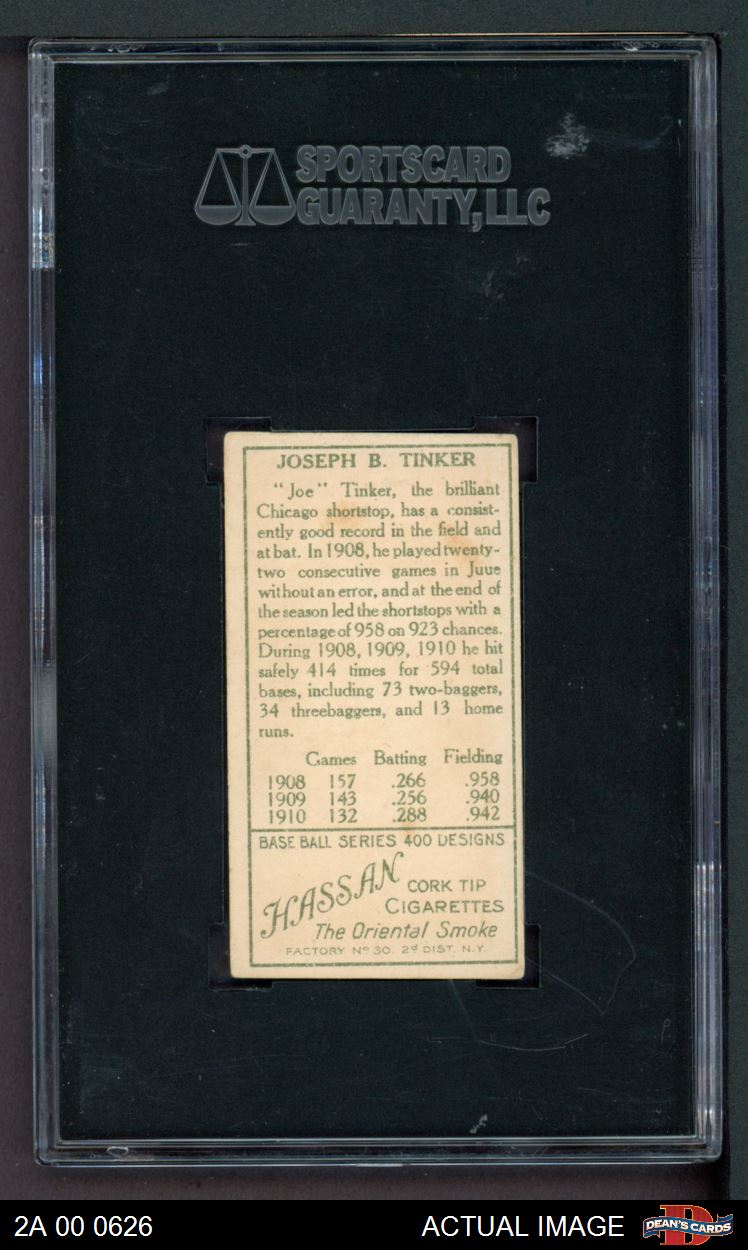 SPORTSCARD
GUARANTY, LLC
JOSEPH B. TINKER
"Joe" Tinker, the brilliant
Chicago shortstop, has a consist-
ently good record in the field and
at bat. In 1908, he played twenty-
two consecutive games in Juue
without an error, and at the end of
the season led the shortstops with a
percentage of 958 on 923 chances.
During 1908, 1909, 1910 he hit
safely 414 times for 594 total
bases, including 73 two-baggers,
34 threebaggers, and 13 home
runs.
Games Batting Fielding
1908 157 .266 .958
1909 143 .256 .940
1910 132 .288 .942
BASE BALL SERIES 400 DESIGNS
HASSAN CORK TIP
CIGARETTES
The Oriental Smoke
FACTORY Nº 30. 2d DIST. N.Y.
2A 00 0626 ACTUAL IMAGE DEAN'S CARDS